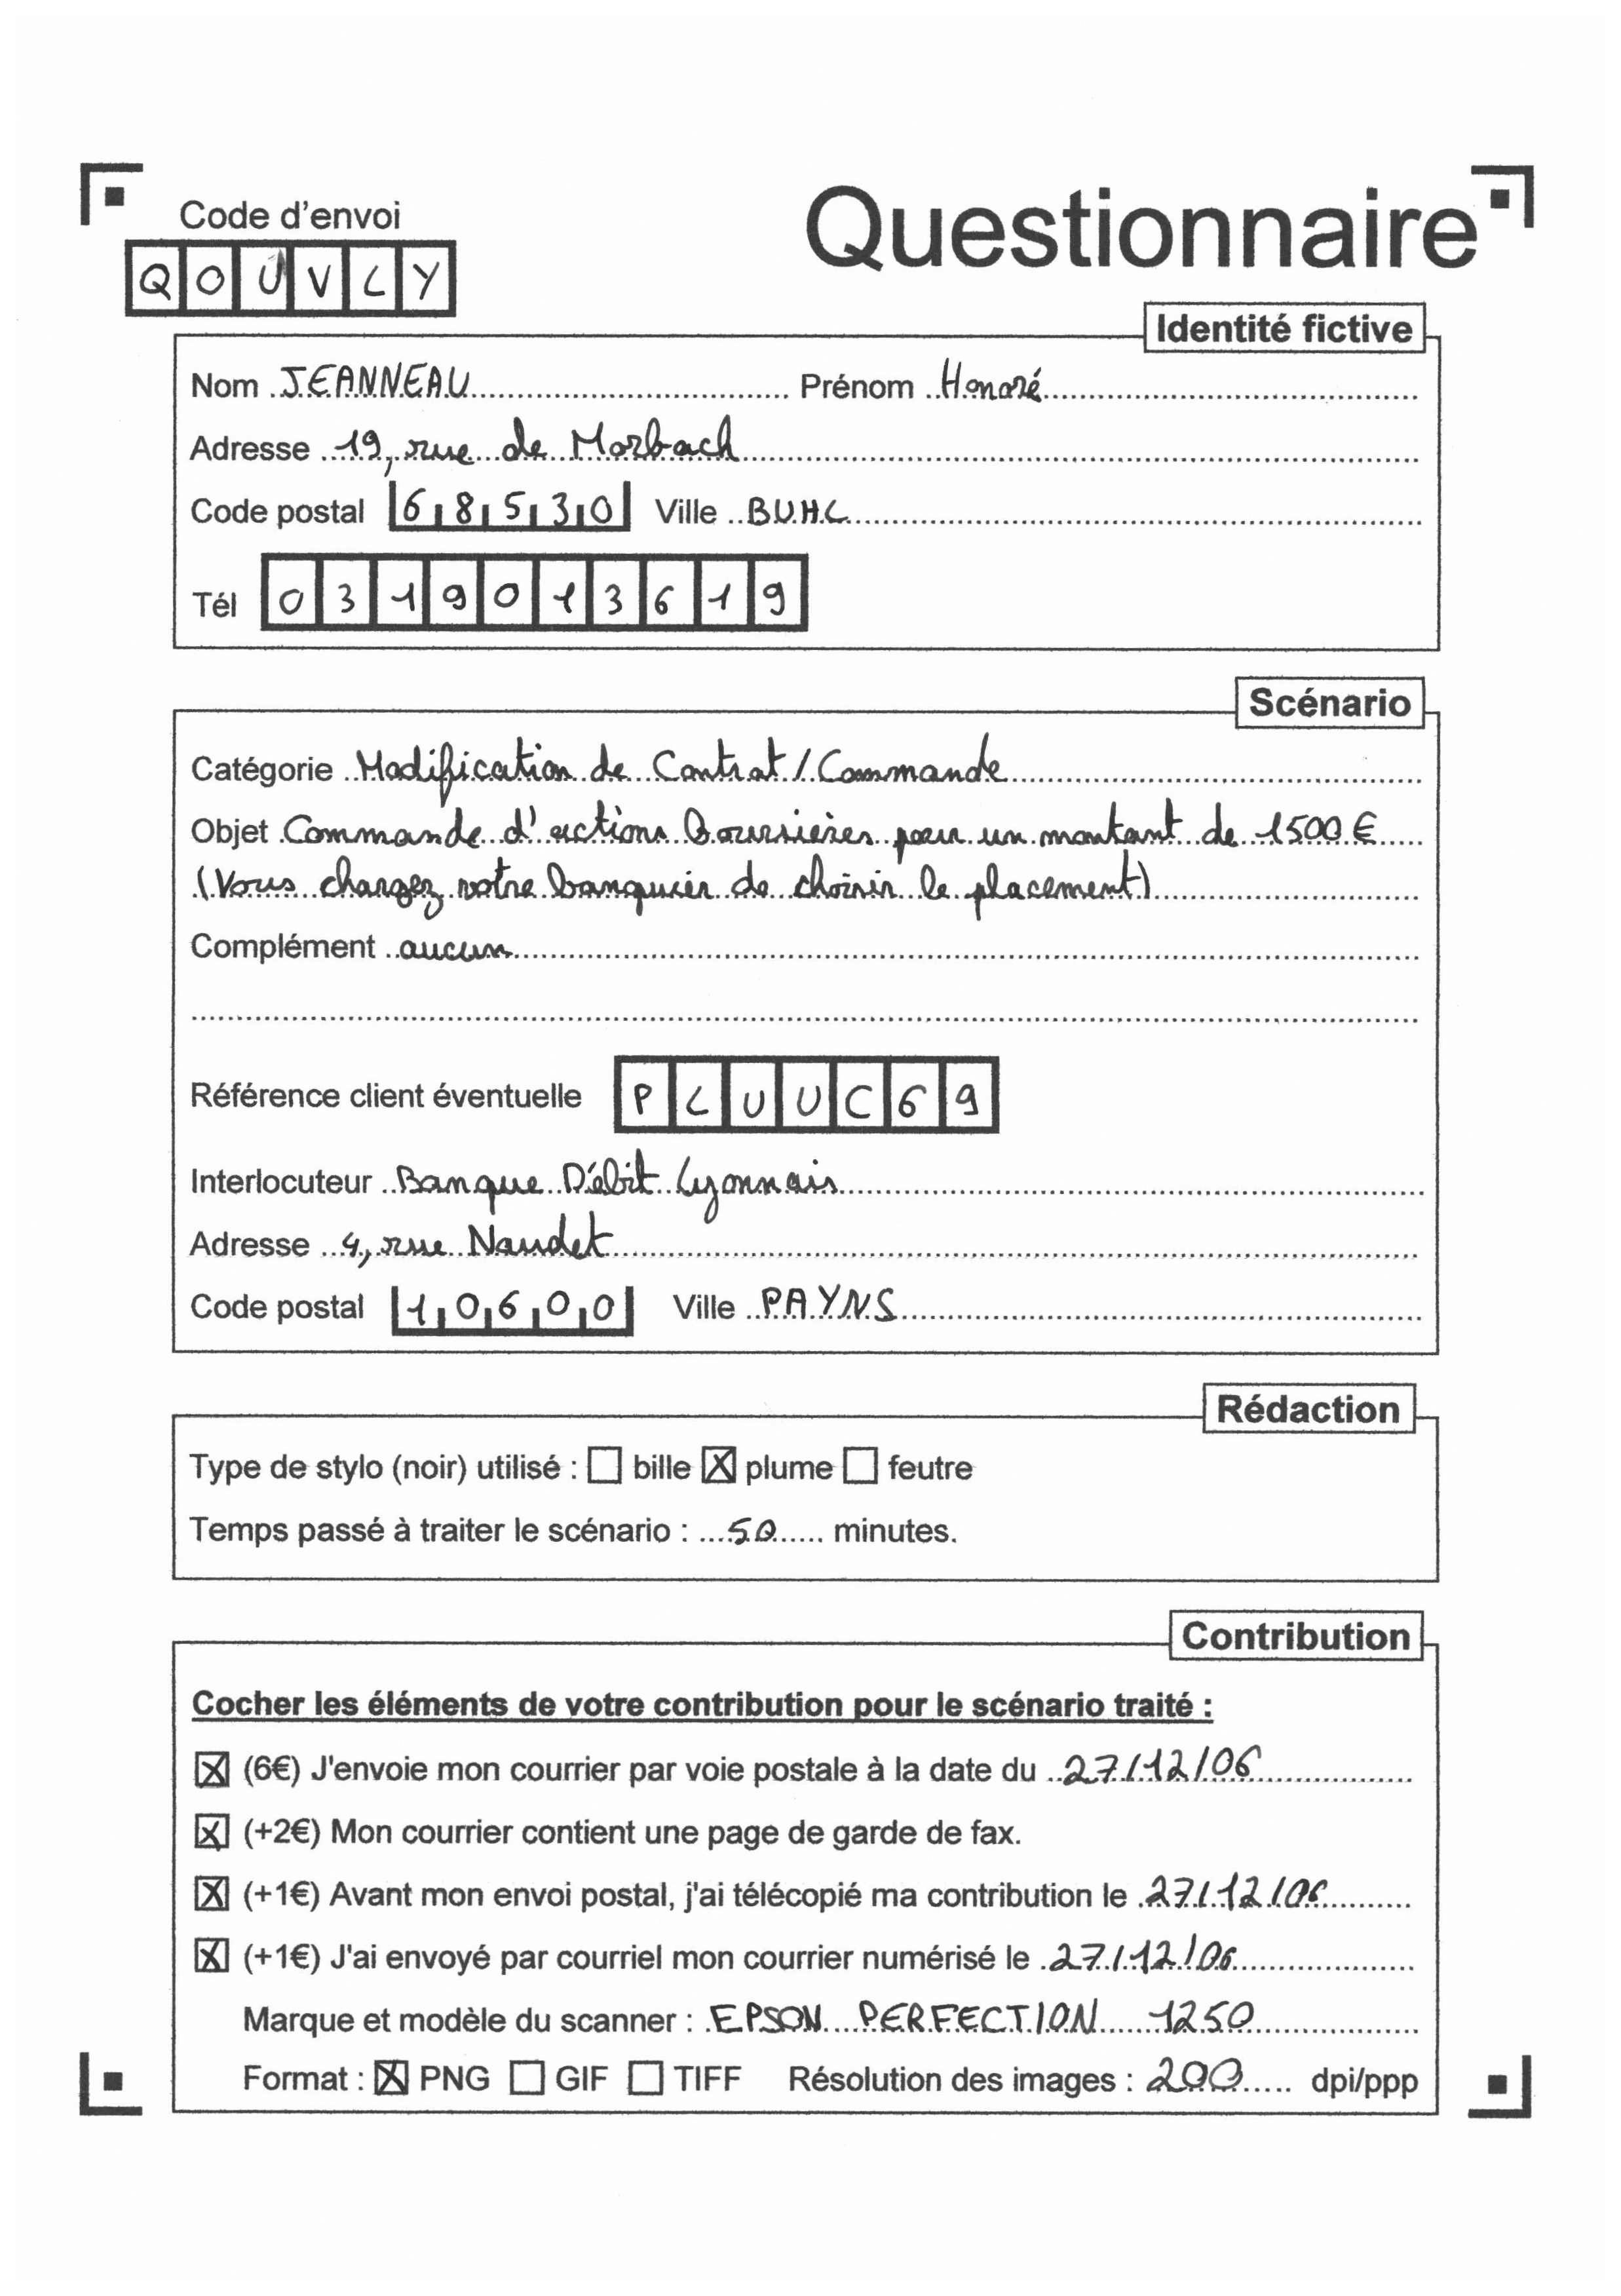 Code d'envoi
Questionnaire
QOUVLY
Identité fictive
Nom JEANNEAU Prénom Honoré
Adresse 19, rue de Morbach
Code postal 68530 Ville BUHL
Tél 0319013619
Scénario
Catégorie Modification de Contrat / Commande
Objet Commande d'actions boursières pour un montant de 1500 €
(Vous chargez votre banquier de choisir le placement)
Complément aucun
Référence client éventuelle PLUUC69
Interlocuteur Banque Débit Lyonnais
Adresse 4, rue Naudet
Code postal 10600 Ville PAYNS
Rédaction
Type de stylo (noir) utilisé : ☐ bille ☒ plume ☐ feutre
Temps passé à traiter le scénario : 50 minutes.
Contribution
Cocher les éléments de votre contribution pour le scénario traité :
☒ (6€) J'envoie mon courrier par voie postale à la date du 27/12/06
☒ (+2€) Mon courrier contient une page de garde de fax.
☒ (+1€) Avant mon envoi postal, j'ai télécopié ma contribution le 27/12/06
☒ (+1€) J'ai envoyé par courriel mon courrier numérisé le 27/12/06
Marque et modèle du scanner : EPSON PERFECTION 1250
Format : ☒ PNG ☐ GIF ☐ TIFF Résolution des images : 200 dpi/ppp